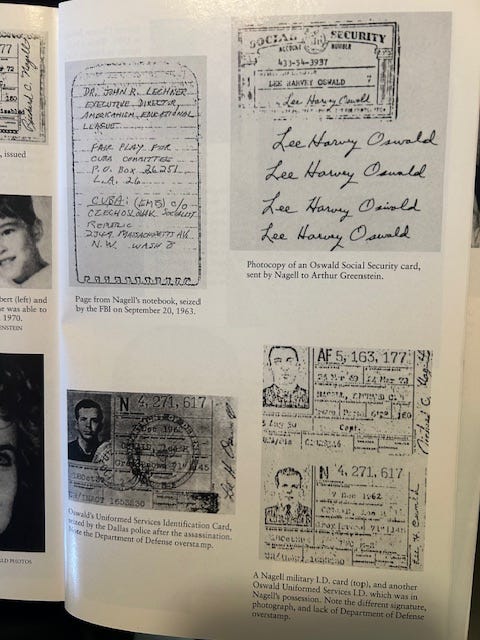 77
Richard C. Nagell
, issued
bert (left) and
ne was able to
1970.
ENSTEIN
LD PHOTOS
DR. JOHN R. LECHNER
EXECUTIVE DIRECTOR,
AMERICANISM EDUCATIONAL
LEAGUE
FAIR PLAY FOR
CUBA COMMITTEE
P.O. BOX 26251
L.A. 26
CUBA: (EMB) C/O
CZECHOSLOVAK SOCIALIST
REPUBLIC
2349 MASSACHUSETTS AV.
N.W. WASH 8
Page from Nagell's notebook, seized
by the FBI on September 20, 1963.
SOCIAL SECURITY
ACCOUNT NUMBER
433-54-3937
LEE HARVEY OSWALD
Lee Harvey Oswald
Lee Harvey Oswald
Lee Harvey Oswald
Lee Harvey Oswald
Lee Harvey Oswald
Photocopy of an Oswald Social Security card,
sent by Nagell to Arthur Greenstein.
N 4,271,617
Oswald's Uniformed Services Identification Card,
seized by the Dallas police after the assassination.
Note the Department of Defense overstamp.
AF 5,163,177
Capt.
Richard C. Nagell
N 4,271,617
7 Dec 1962
A Nagell military I.D. card (top), and another
Oswald Uniformed Services I.D. which was in
Nagell's possession. Note the different signature,
photograph, and lack of Department of Defense
overstamp.